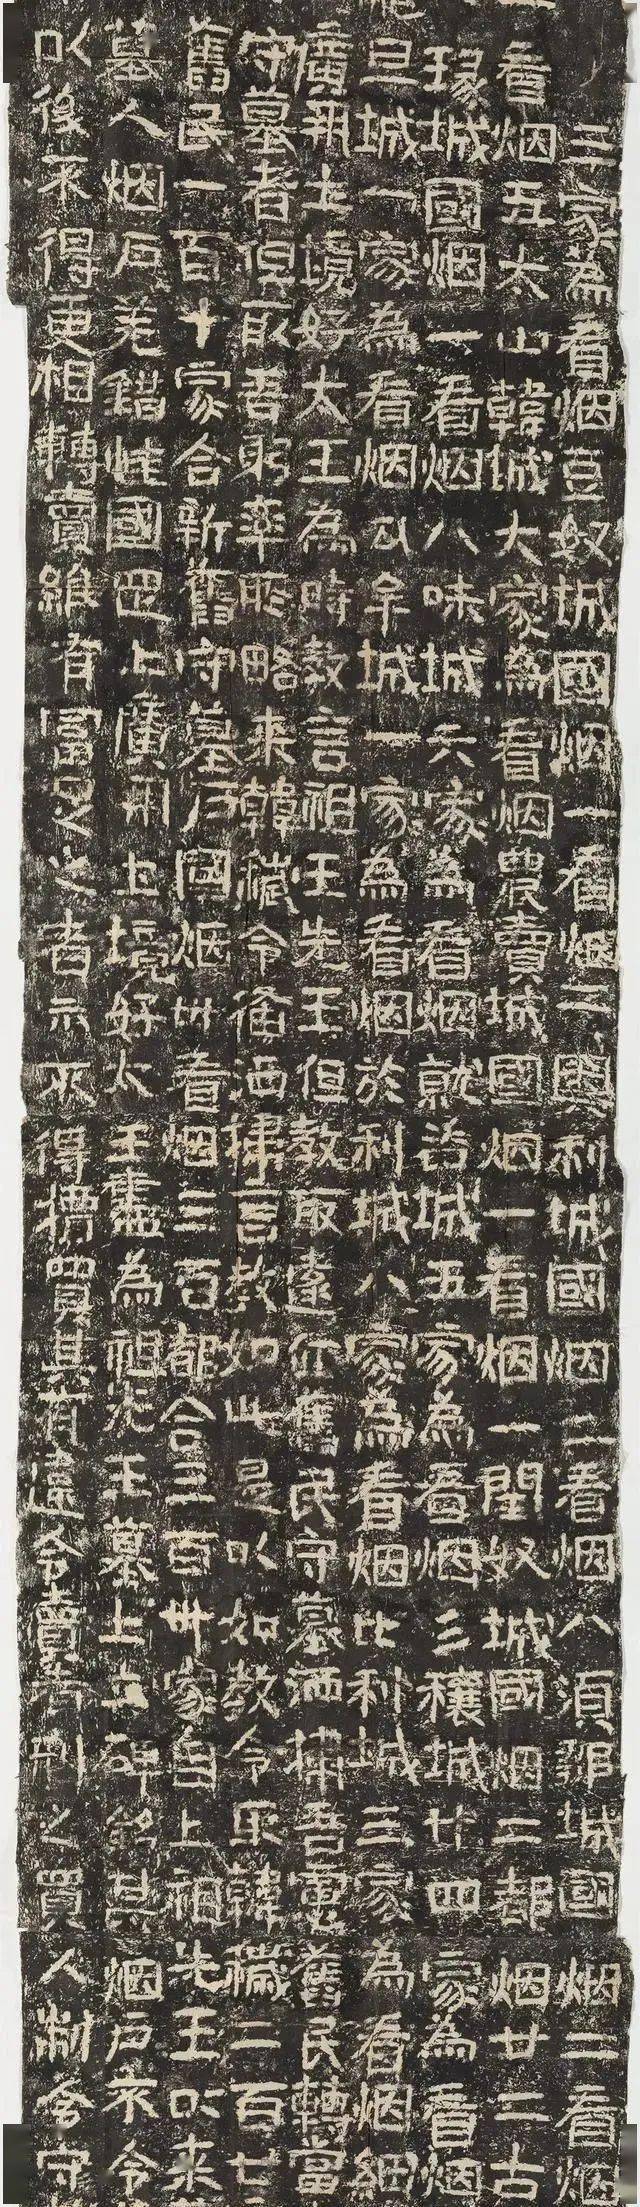 三家為看烟豆奴城國烟一看烟二奧利城國烟二看烟八須鄒城國烟二看烟
看烟五太山韓城六家為看烟農賣城國烟一看烟一閏奴城國烟二都烟廿二古
瑑城國烟一看烟八味城六家為看烟就咨城五家為看烟彡穰城廿四家為看烟
旦城一家為看烟勾牟城一家為看烟於利城八家為看烟比利城三家為看烟細
廣開土境好太王為時教言祖王先王但教取遠近舊民守墓洒掃吾慮舊民轉當
守墓者但取吾躬率所略來韓穢令備洒掃言教如此是以如教令取韓穢二百廿
舊民一百十家合新舊守墓户國烟卅看烟三百都合三百卅家自上祖先王以來
墓人烟户差錯唯國罡上廣開土境好太王盡為祖先王墓上立碑銘其烟户不令
以後不得更相轉賣雖有富足之者亦不得擅買其有違令賣者刑之買人制令守